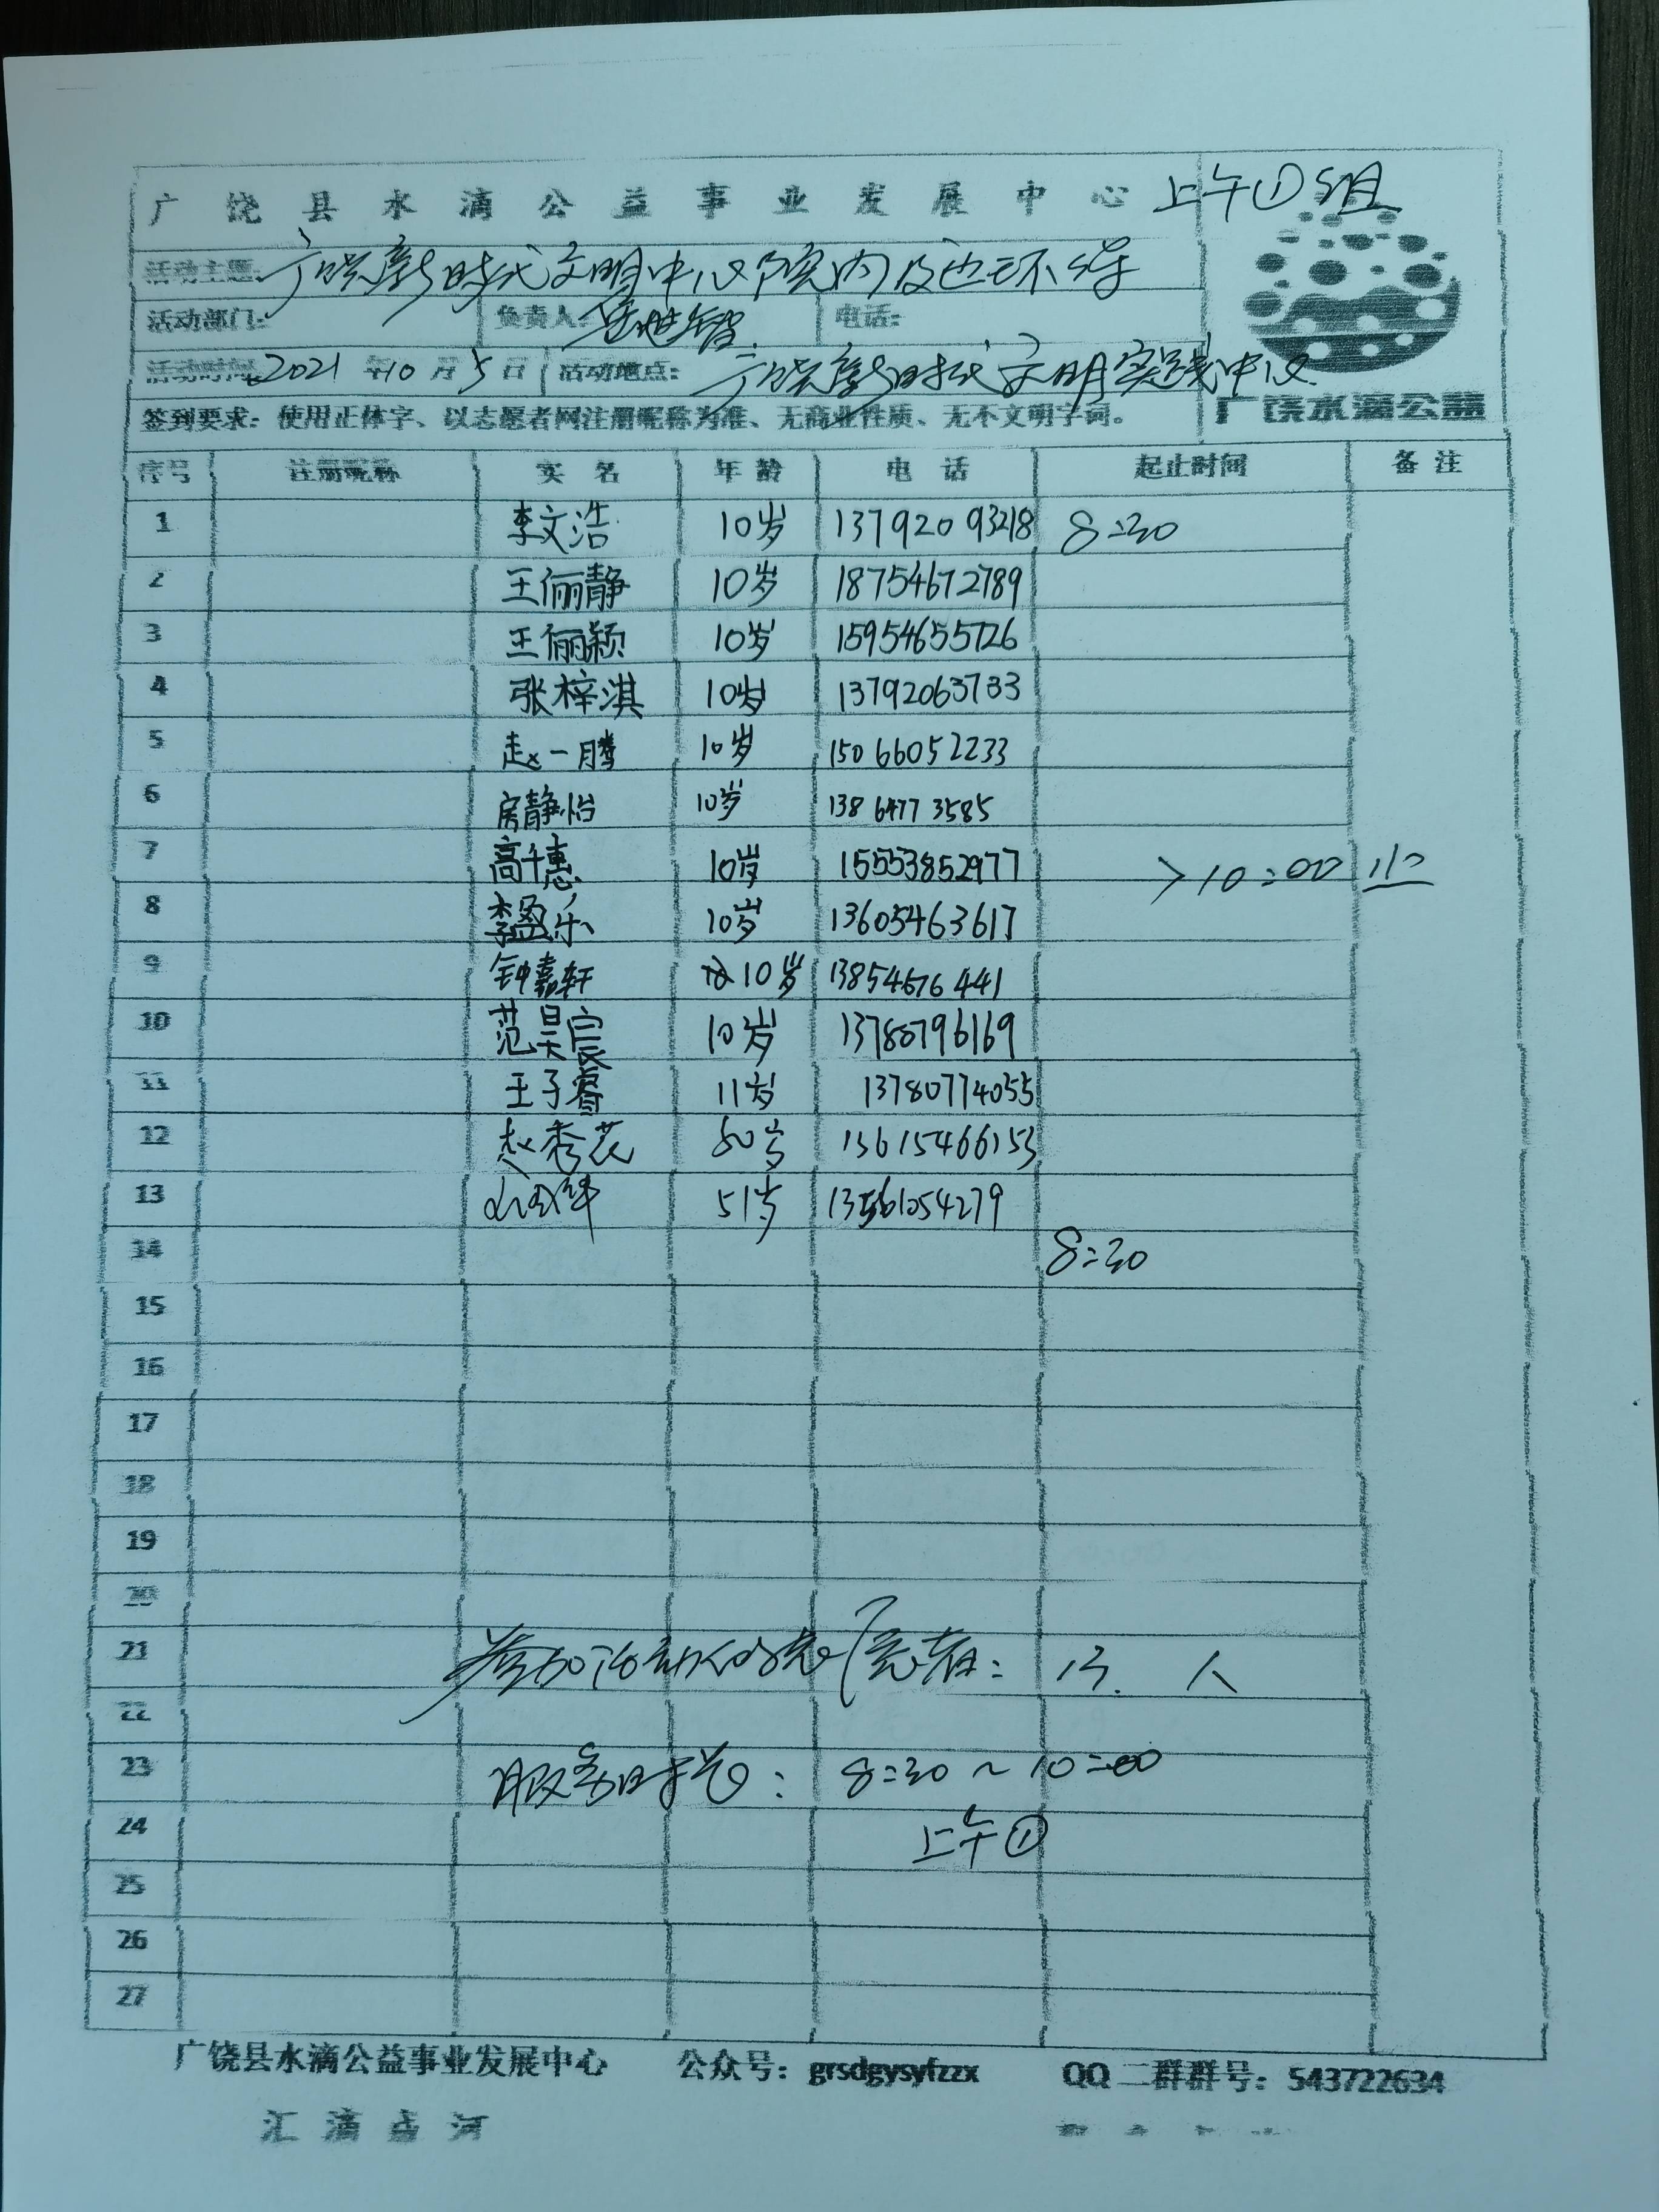 广饶县水滴公益事业发展中心 上午①组
活动主题: 广饶新时代文明中心院内及边环保
活动部门: 负责人: 电话:
活动时间: 2021年10月5日 活动地点: 广饶新时代文明实践中心
签到要求: 使用正体字、以志愿者网注册昵称为准、无商业性质、无不文明字词。
广饶水滴公益
序号 注册昵称 实名 年龄 电话 起止时间 备注
1 李文浩 10岁 13792093218 8:30
2 王俪静 10岁 18754672789
3 王俪颖 10岁 15954655726
4 张梓淇 10岁 13792063733
5 赵一腾 10岁 15066052233
6 房静怡 10岁 13864773585
7 高千惠 10岁 15553852977 >10:00
8 李盈乐 10岁 13605463617
9 钟嘉轩 10岁 13854676441
10 范昊宸 10岁 13780796169
11 王子睿 11岁 13780774055
12 赵秀花 60岁 13615466153
13 51岁 13561054279
14 8:30
15
16
17
18
19
20
21 参加活动的志愿者: 13.人
22
23 服务时长: 8:30~10:00
24 上午①
25
26
27
广饶县水滴公益事业发展中心 公众号: grsdgysyfzzx QQ二群群号: 543722634
汇滴成河